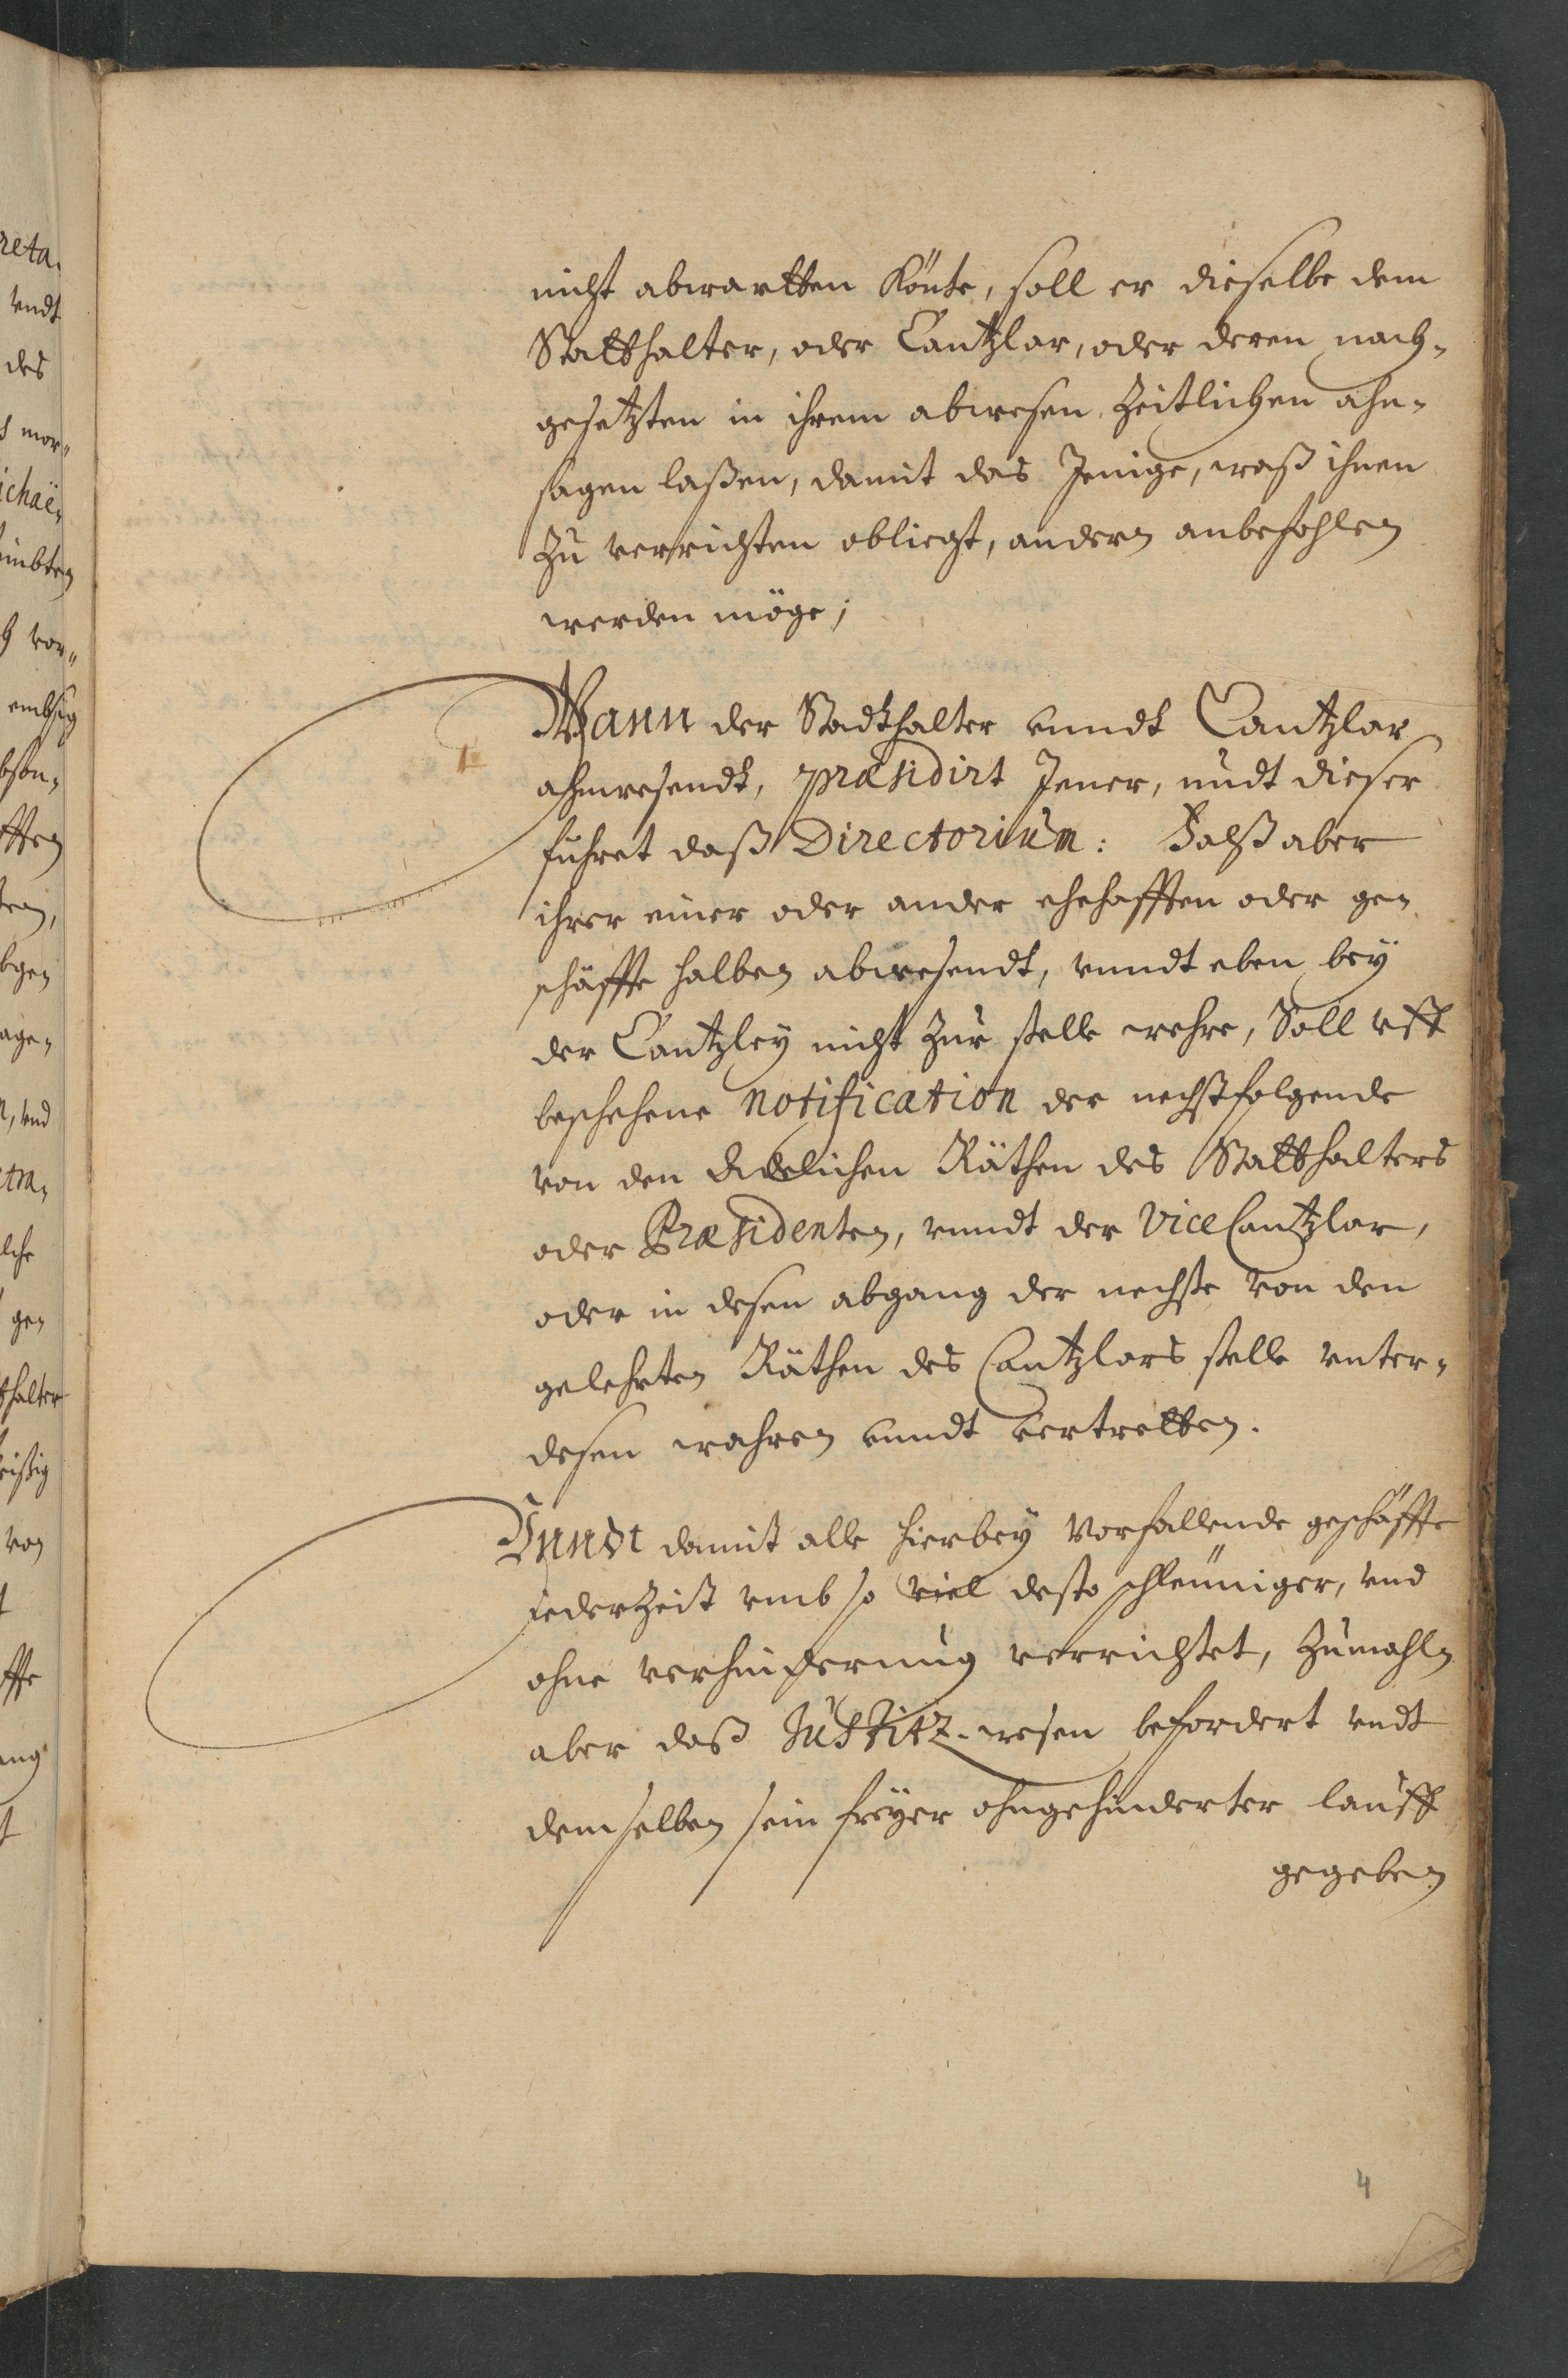 nicht abwartten Könte, soll er dieselbe dem
Statthalter, oder Cantzlar, oder deren nach-
gesetzten in ihrem abwesen, Zeitlichen ahn-
sagen laßen, damit das Jenige, waß ihnen
Zu verrichten obliegt, andern anbefohlen
werden möge;
Wann der Stadthalter vnndt Cantzlar
ahnwesendt, præsidirt Jener, undt dieser
fuhret daß Directorium: Falß aber
ihrer einer oder ander ehehafften oder ge-
schäffte halben abwesendt, vnndt eben bey
der Cantzley nicht Zur stelle wehre, Soll vff
beschehene notification der nechstfolgende
von den Adelichen Räthen des Statthalters
oder Præsidenten, vnndt der ViceCantzlar,
oder in deßen abgang der nechste von den
gelehrten Räthen des Cantzlars stelle vnter-
deßen wahren vnndt vertretten.
Vnndt damit alle hierbey Vorfallende geschäffte
jederZeit vmb so viel desto schleuniger, vnd
ohne verhinderung verrichtet, Zumahln
aber daß Justitz-wesen befordert vndt
demselben sein freyer ohngehinderter lauff
gegeben
4
reta-
vndt
des
mor-
ichaë-
vor-
embsig
bson-
age-
n, vnd
tra-
lche
ge-
thalter
von